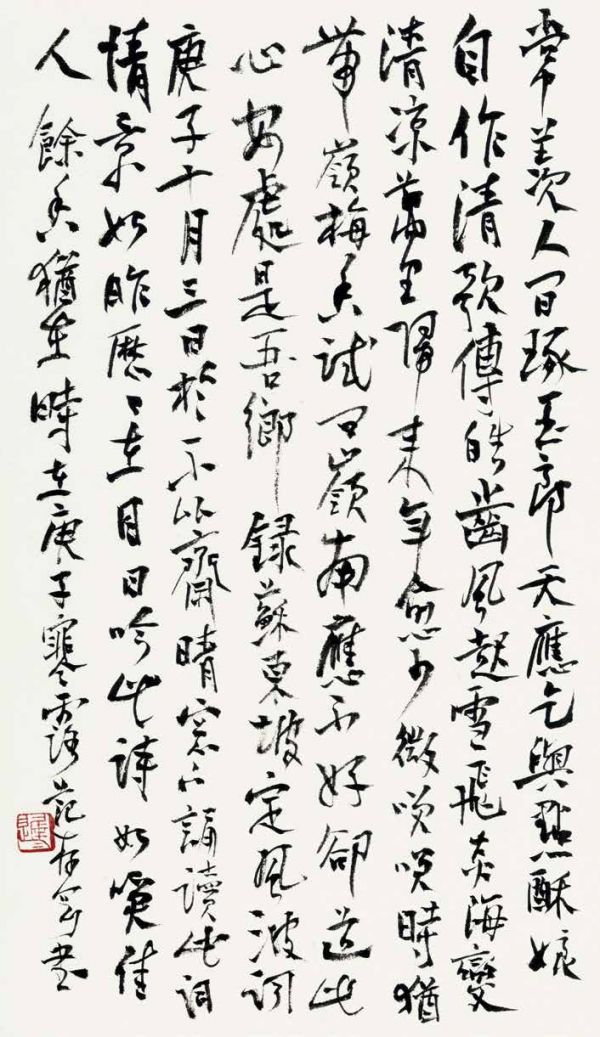 常羡人间琢玉郎天應乞與點酥娘
自作清歌傳皓齒風起雪飛炎海變
清凉萬里歸来年愈少微笑笑時猶
帶嶺梅香試問嶺南應不好卻道此
心安處是吾鄉録蘇東坡定風波詞
庚子十月三日於不比齋晴窓下誦讀此詞
情景如昨歷歷在目日吟此詩如喚佳
人餘香猶在時在庚子寒露范